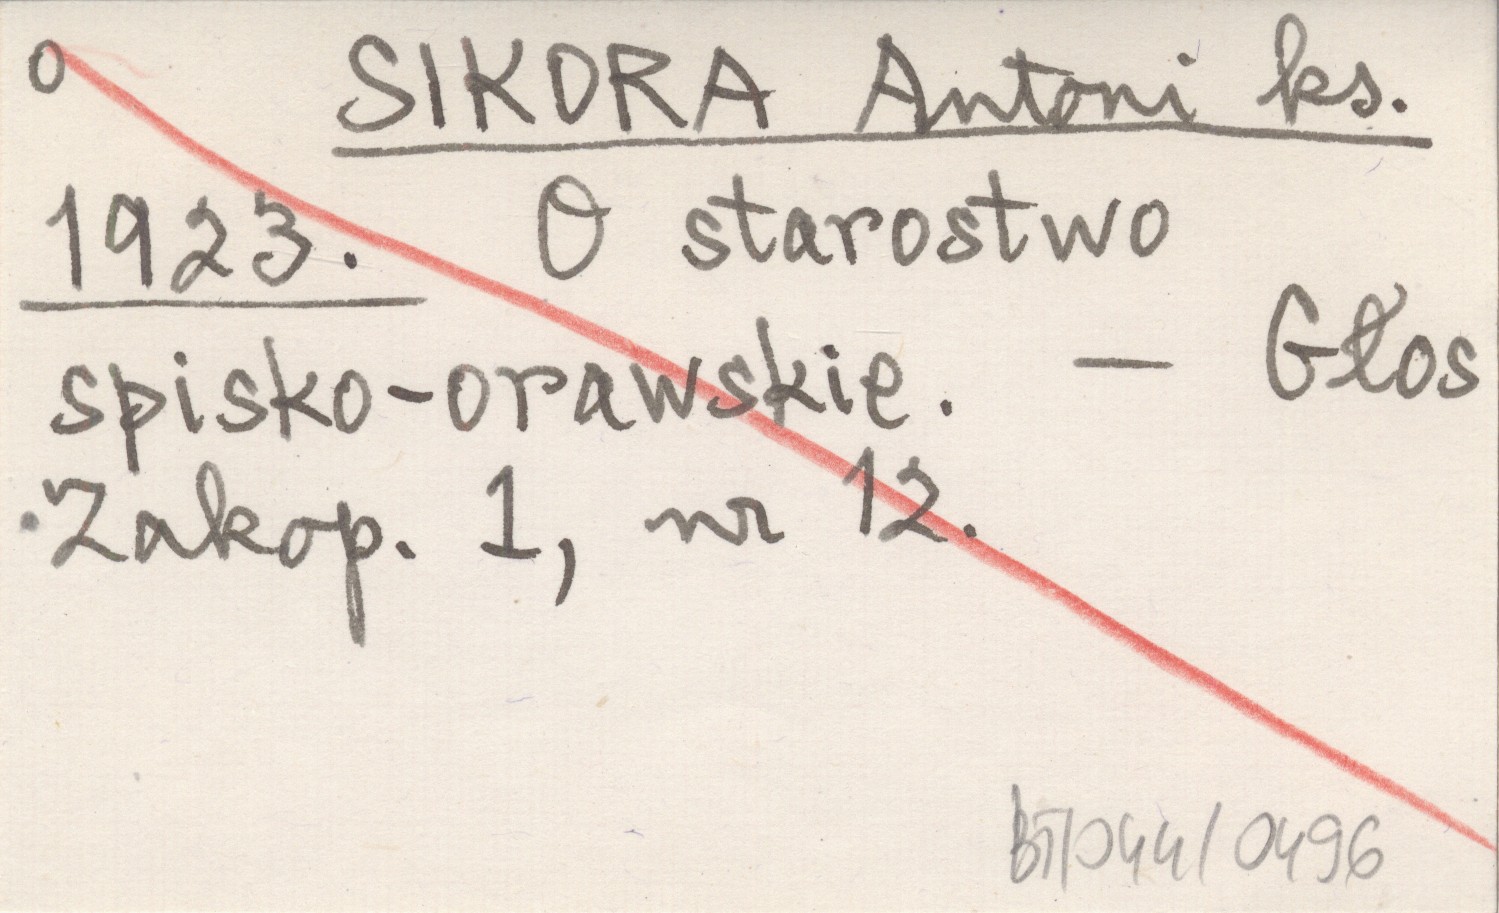 O SIKORA Antoni ks.
1923. O starostwo
spisko-orawskie. — Głos
Zakop. 1, nr 12.
BT/044/0496